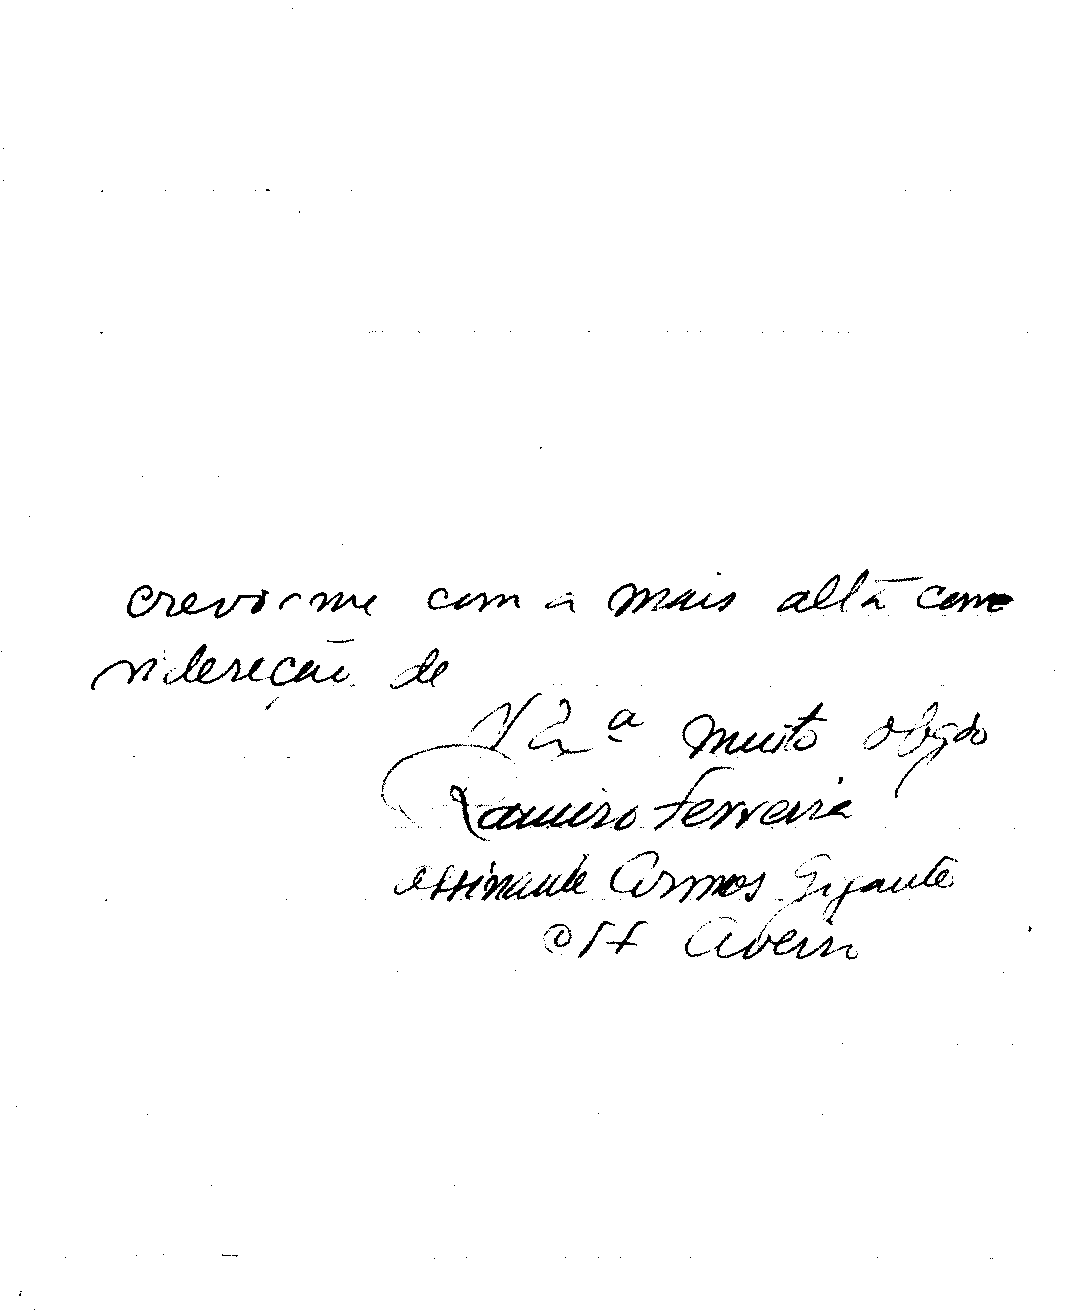 crevo-me com a mais alta con
sideração de
V Exª muito obgdo
Ramiro Ferreira
assinante Cosmos Gigante
Aveiro